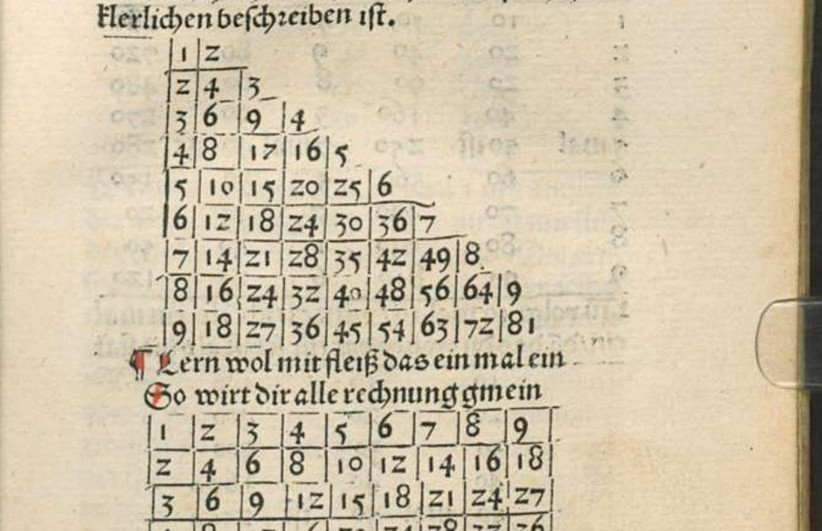 klerlichen beſchreiben iſt.
1 2
2 4 3
3 6 9 4
4 8 12 16 5
5 10 15 20 25 6
6 12 18 24 30 36 7
7 14 21 28 35 42 49 8
8 16 24 32 40 48 56 64 9
9 18 27 36 45 54 63 72 81
¶ Lern wol mit fleiß das ein mal ein
So wirt dir alle rechnung gmein
1 2 3 4 5 6 7 8 9
2 4 6 8 10 12 14 16 18
3 6 9 12 15 18 21 24 27